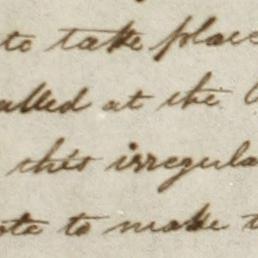 to take place
alled at the
this irregula
ote to make t